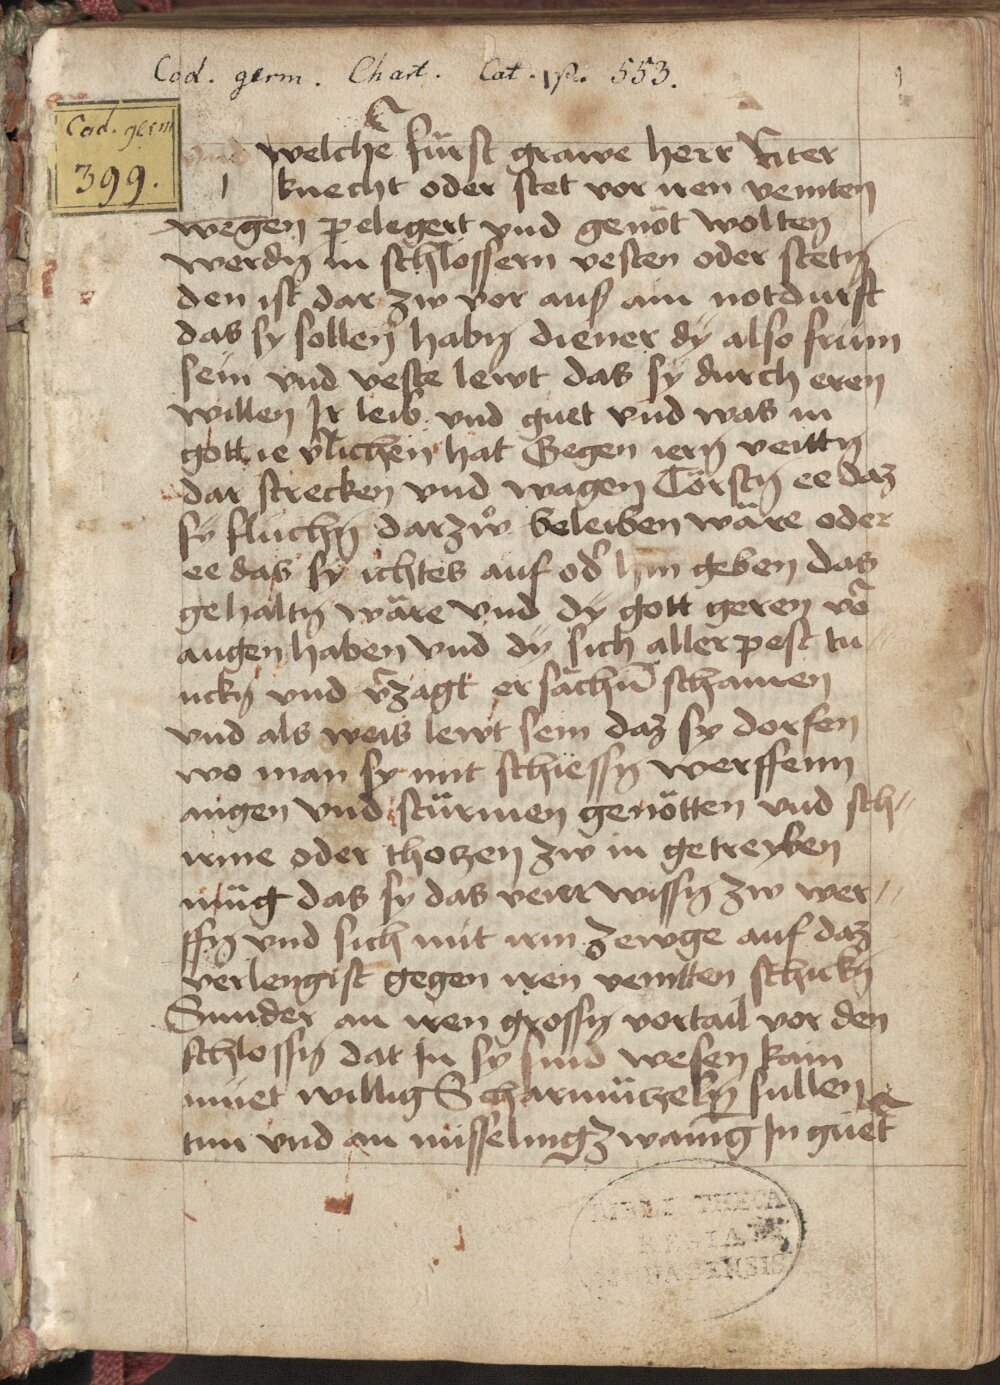 Cod. germ. Chart. Cat. p. 553.
1
Cod. germ
399.
Und welcher fürst grawe herr Riter
knecht oder stet vor iren veinten
wegen pelegert vnd genöt wolten
werdn in schlossern vesten oder stetn
den ist dar zw vor auß ain notdurft
das sy sollen habn diener dy also frum
sein vnd veste lewt das sy durch eren
willen Ir leib vnd guet vnd was in
gott ie v̄lichen hat Gegen iern veittn
dar strecken vnd wagen Törstn ee daz
sy fluchn darzwͦ beleiben wäre oder
ee das sy ichtes auf od' hin geben das
gehaltn wäre vnd dy gott geren vō
augen haben vnd dy sich aller pest tu〃
uckn vnd v̄zagt er sachn̄ schamen
vnd als weis lewt sein daz sy dorfen
wo man sy mit schiessn werffenn
angen vnd stürmen genötten vnd sch〃
irme oder thotzen zw in getreyben
müg das sy das veur wissn zw wer〃
ffn vnd sich mit irm zewge auf daz
verlengist gegen iren veintten schickn
Sunder an iren grossn vortail vor den
schlossn dar In sy sind wesen kain
muet willig Scharmützeln sullen
tun vnd an misselingzwaing In guet
BIBLIOTHECA
REGIA
MONACENSIS